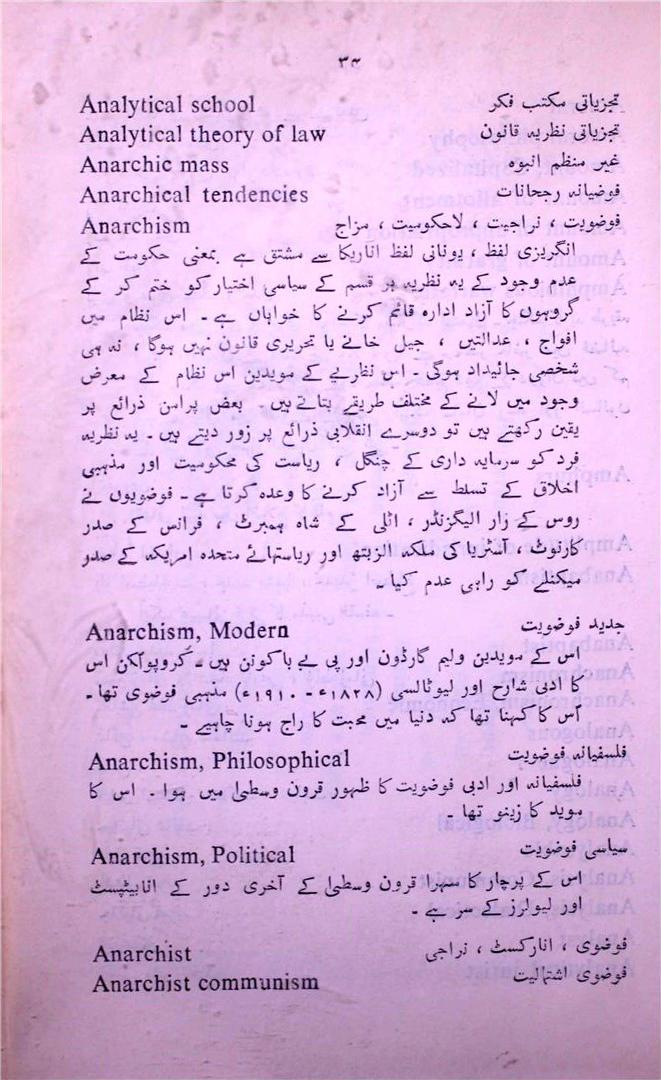 ۳۴
Analytical school تجزیاتی مکتب فکر
Analytical theory of law تجزیاتی نظریہ قانون
Anarchic mass غیر منظم انبوہ
Anarchical tendencies فوضیانہ رجحانات
Anarchism فوضویت ، نراجیت ، لاحکومیت ، مزاج
انگریزی لفظ ، یونانی لفظ اناریکا سے مشتق ہے بمعنی حکومت کے
عدم وجود کے یہ نظریہ ہر قسم کے سیاسی اختیار کو ختم کر کے
گروہوں کا آزاد ادارہ قائم کرنے کا خواہاں ہے ۔ اس نظام میں
افواج ، عدالتیں ، جیل خانے یا تحریری قانون نہیں ہوگا ، نہ ہی
شخصی جائیداد ہوگی ۔ اس نظریے کے مویدین اس نظام کے معرض
وجود میں لانے کے مختلف طریقے بتاتے ہیں ۔ بعض پرامن ذرائع پر
یقین رکھتے ہیں تو دوسرے انقلابی ذرائع پر زور دیتے ہیں ۔ یہ نظریہ
فرد کو سرمایہ داری کے چنگل ، ریاست کی محکومیت اور مذہبی
اخلاق کے تسلط سے آزاد کرنے کا وعدہ کرتا ہے ۔ فوضویوں نے
روس کے زار الیگزنڈر ، اٹلی کے شاہ ہمبرٹ ، فرانس کے صدر
کارنوٹ ، آسٹریا کی ملکہ الزبتھ اور ریاستہائے متحدہ امریکہ کے صدر
میکنلے کو راہی عدم کیا ۔
Anarchism, Modern جدید فوضویت
اس کے مویدین ولیم گارڈون اور پی بے باکونن ہیں ۔ کروپوآکن اس
کا ادبی شارح اور لیوٹالسی (۱۸۲۸ء - ۱۹۱۰ء) مذہبی فوضوی تھا ۔
اس کا کہنا تھا کہ دنیا میں محبت کا راج ہونا چاہیے ۔
Anarchism, Philosophical فلسفیانہ فوضویت
فلسفیانہ اور ادبی فوضویت کا ظہور قرون وسطیٰ میں ہوا ۔ اس کا
موید کا زینو تھا ۔
Anarchism, Political سیاسی فوضویت
اس کے پرچار کا سہرا قرون وسطیٰ کے آخری دور کے انابیٹپسٹ
اور لیولرز کے سر ہے ۔
Anarchist فوضوی ، انارکسٹ ، نراجی
Anarchist communism فوضوی اشتمالیت